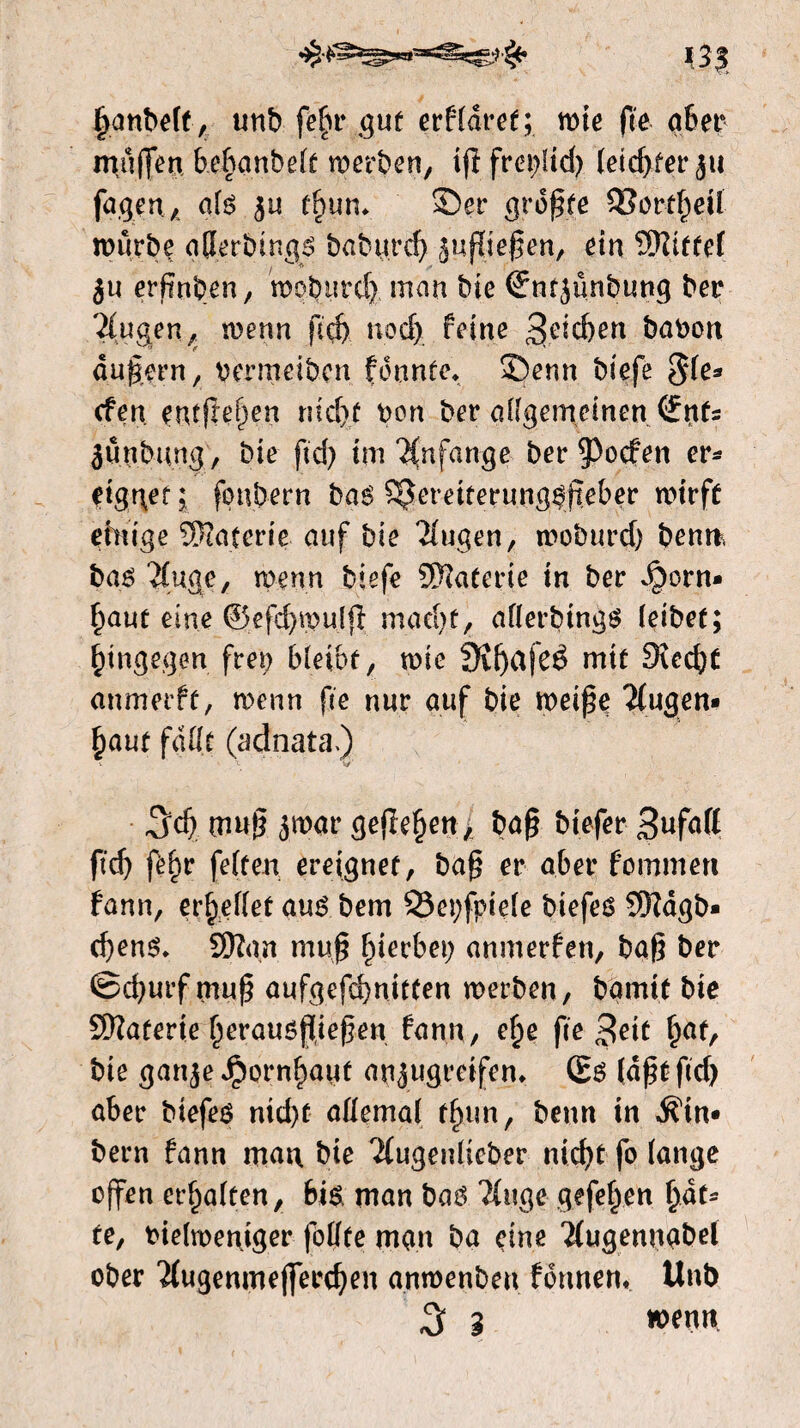 133
handelt, und sehr gut erkläret; wie sie aber
müssen behandelt werden, ist freylich leichter zu
sagen, als zu thun. Der größte Vortheil
würde allerdings dadurch zufließen, ein Mittel
zu erfinden, wodurch man die Entzündung der
Augen, wenn sich noch keine Zeichen davon
äußern, vermeiden könnte. Denn diese Fle-
cken entstehen nicht von der allgemeinen Ent-
zündung, die sich im Anfange der Pocken er-
eignet; sondern das Vereiterungsfieber wirft
einige Materie auf die Augen, wodurch denn
das Auge, wenn diese Materie in der Horn-
haut eine Geschwulst macht, allerdings leidet;
hingegen frey bleibt, wie Rhases mit Recht
anmerkt, wenn sie nur auf die weiße Augen-
haut fällt (adnata.)
Ich muß zwar gestehen, daß dieser Zufall
sich sehr selten ereignet, daß er aber kommen
kann, erhellet aus dem Beyspiele dieses Mägd-
chens. Man muß hierbey anmerken, daß der
Schurf muß aufgeschnitten werden, damit die
Materie herausfließen kann, ehe sie Zeit hat,
die ganze Hornhaut anzugreifen. Es läßt sich
aber dieses nicht allemal thun, denn in Kin-
dern kann man die Augenlieder nicht so lange
offen erhalten, bis man das Auge gesehen hät-
te, vielweniger sollte man da eine Augennadel
oder Augenmesserchen anwenden können. Und
J 3 wenn